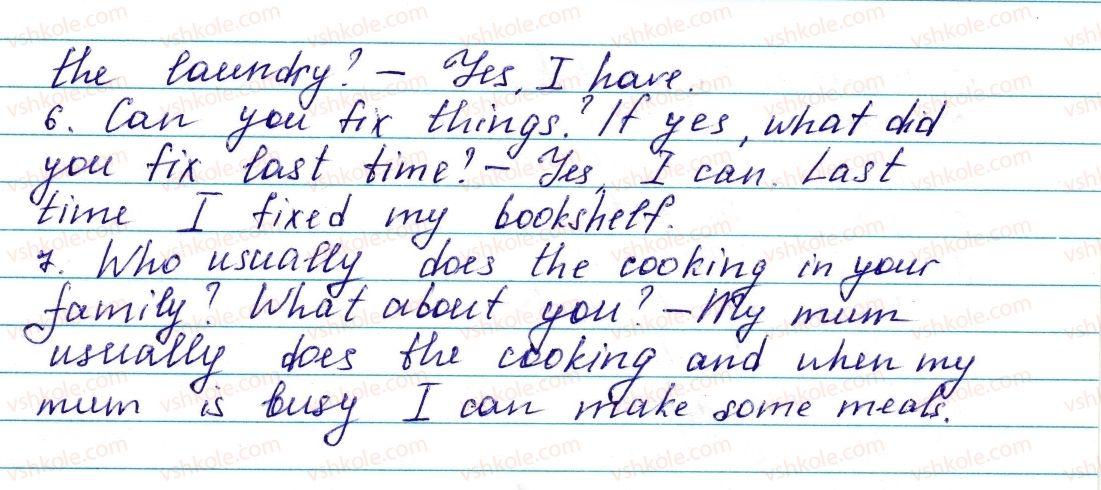 the laundry? – Yes, I have.
6. Can you fix things? If yes, what did
you fix last time? – Yes, I can. Last
time I fixed my bookshelf.
7. Who usually does the cooking in your
family? What about you? – My mum
usually does the cooking and when my
mum is busy I can make some meals.
vshkole.com